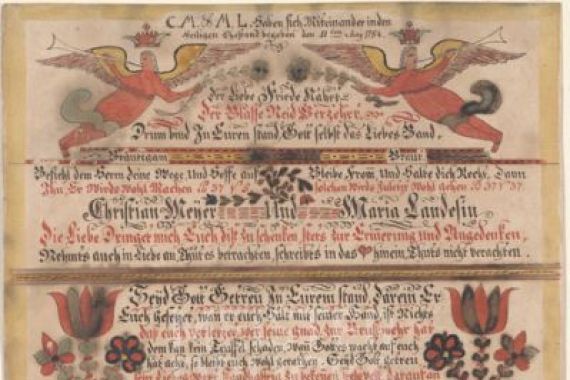 C. M. & M L. Haben sich Miteinander in den
Heiligen Ehestand begeben den 11 May 1784.
Der Liebe Friede Nährt
Der Blasse Neid Verzehrt
Drum bind In Euren stand, Gott selbst das Liebes Band.
Bräutigam Braut
Befiehl dem Herrn deine Wege, Und Hoffe auf Bleibe From, Und Halte dich Recht, Dann
Ihn, Er Wirds Wohl Machen Ps 37 V 5 solchen Wirds zuletzt Wohl gehen Ps 37 V 37.
Christian Meyer Und Maria Landesin
Die Liebe Dringet mich Euch diß Zu schenken stets zur Erinerung Und Angedencken,
Nehmts auch in Liebe an, Thut es betrachten, schreibts in das hinein, Thuts nicht verachten.
Seyd Gott Getreu In Eurem stand, Darein Er
Euch Gesezet, wan er euch Hält mit seiner Hand, ist Nichts
daß euch verletzet, wer seine gnad zur Brustwehr hat
dem kan kein Teuffel schaden, Wan Gottes wacht auf euch
hat acht, so bleibt euch Wohl gerathen. Seyd Gott Getreu